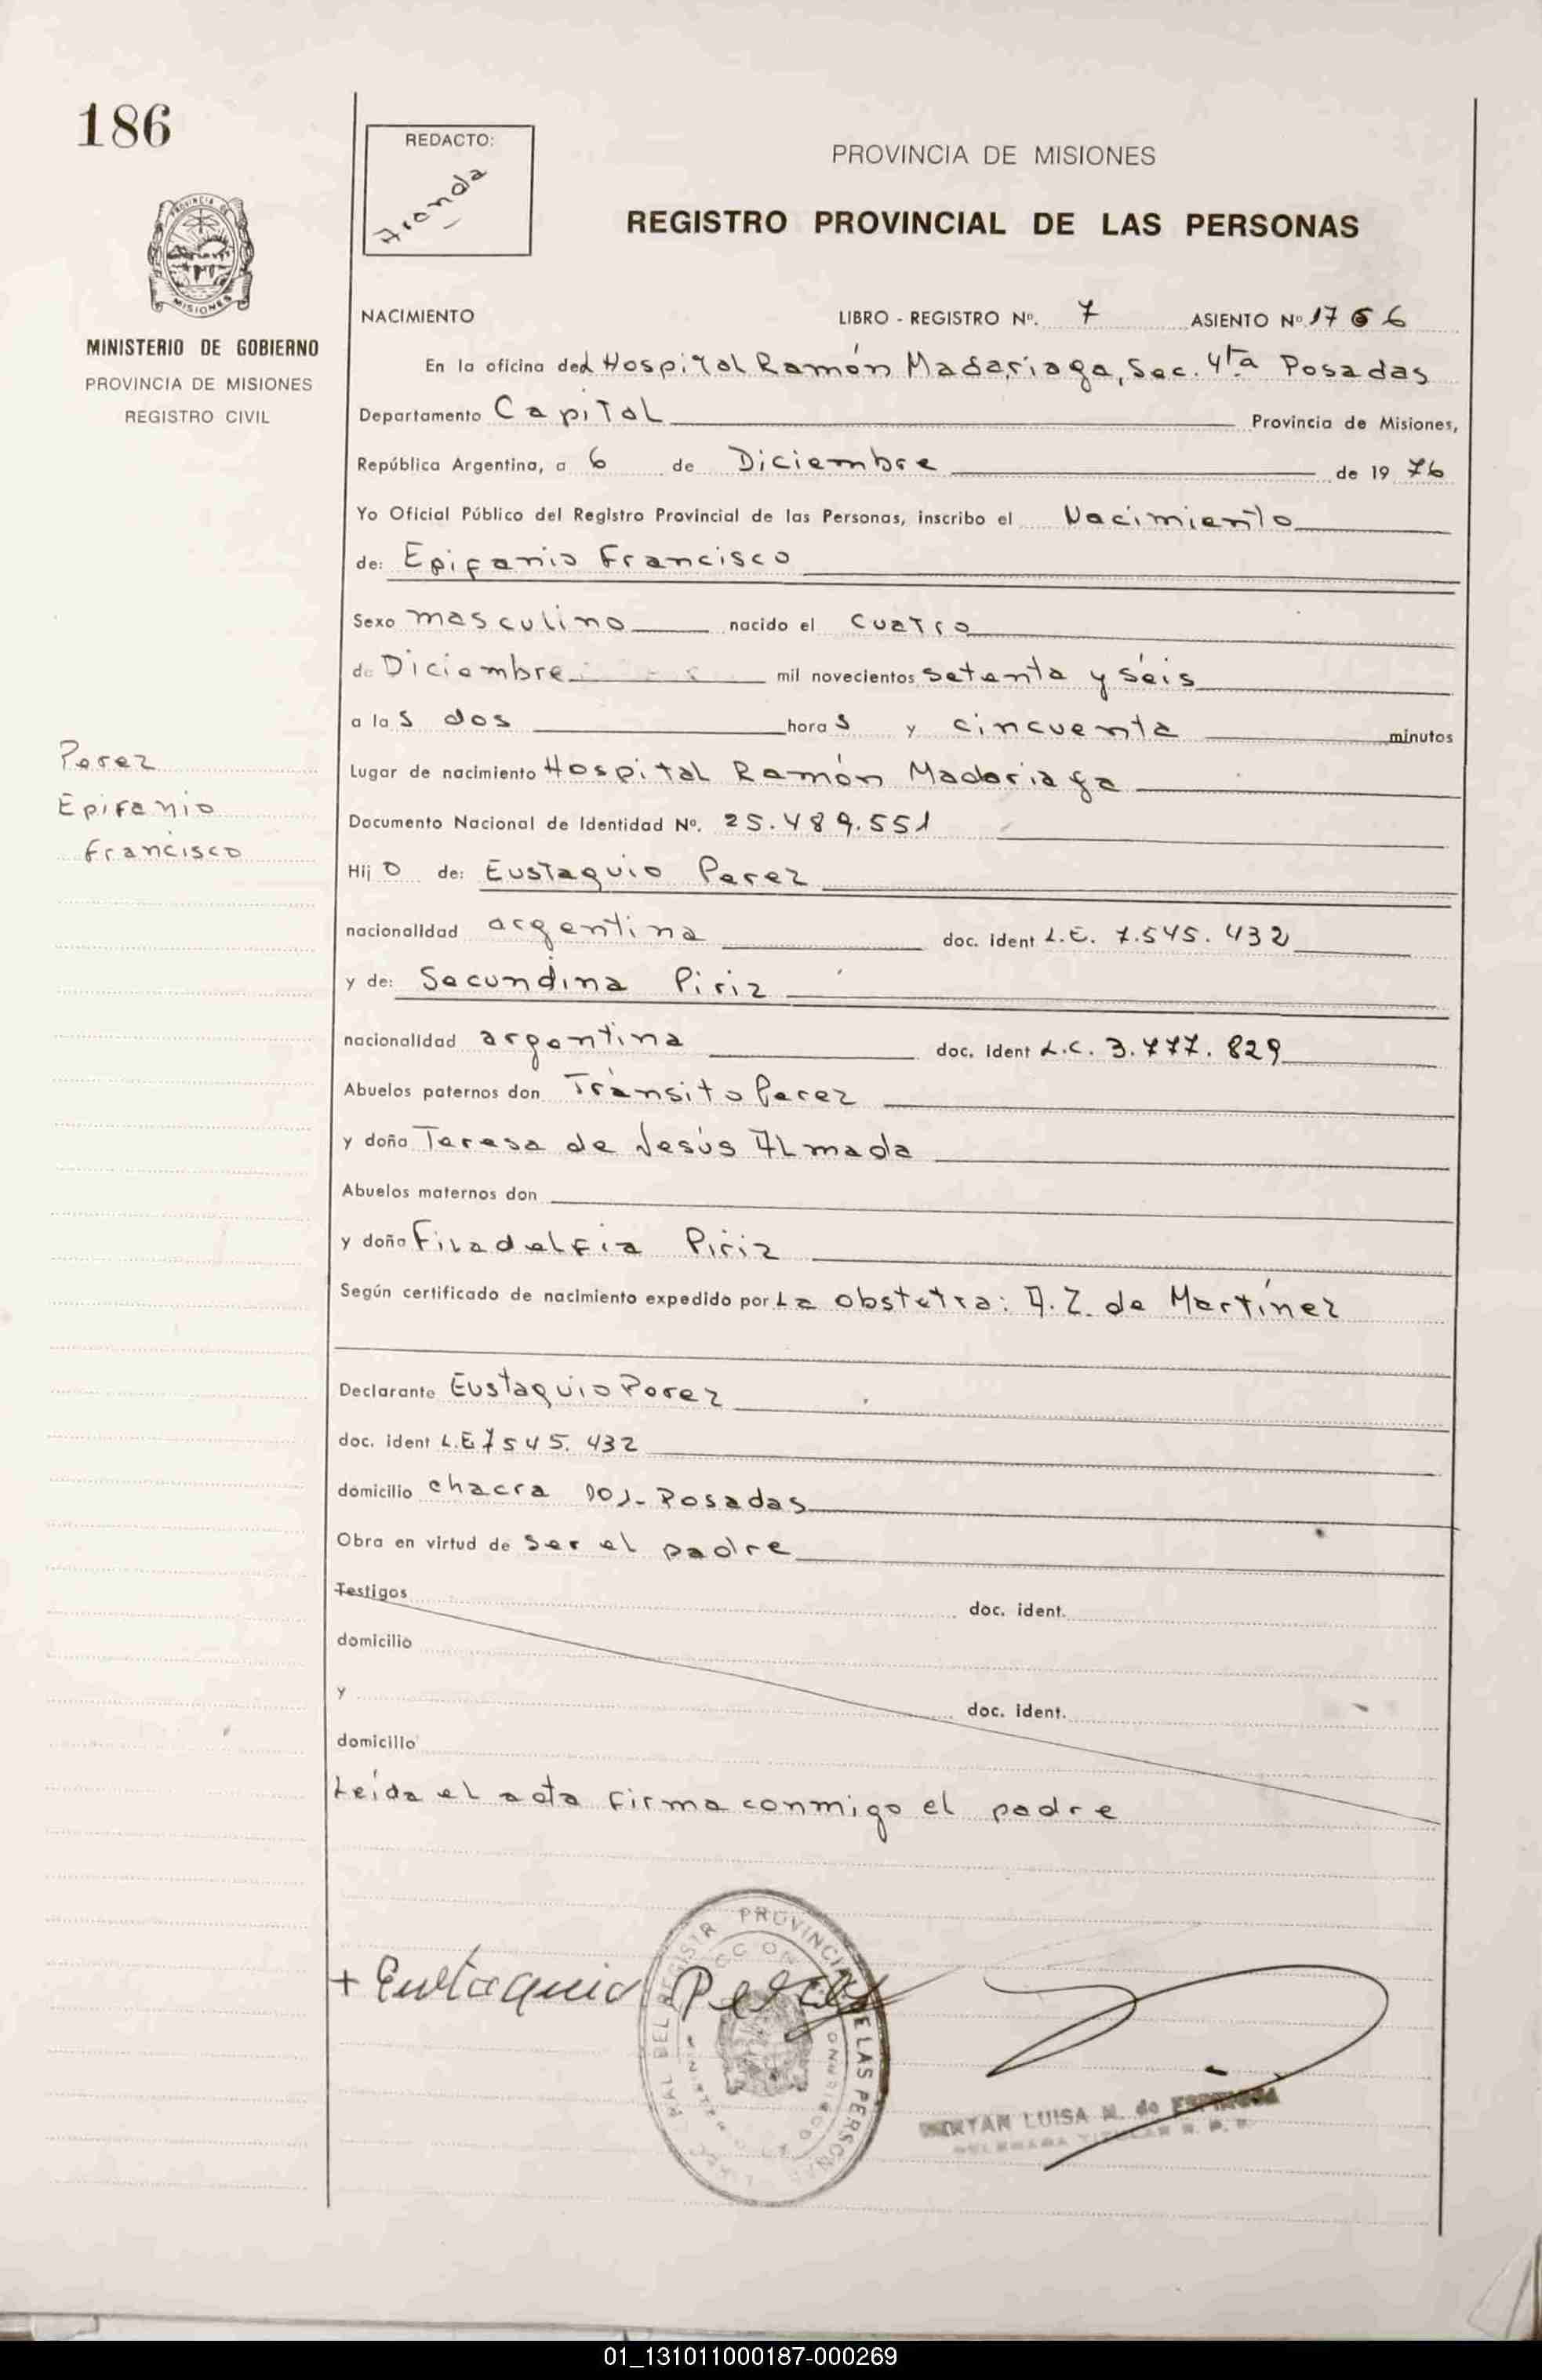 186
REDACTO:
Aranda
PROVINCIA DE MISIONES
REGISTRO PROVINCIAL DE LAS PERSONAS
PROVINCIA DE
MISIONES
MINISTERIO DE GOBIERNO
PROVINCIA DE MISIONES
REGISTRO CIVIL
NACIMIENTO LIBRO - REGISTRO Nº. 7 ASIENTO Nº 1766
En la oficina del Hospital Ramón Madariaga, Sec. 4ta Posadas
Departamento Capital Provincia de Misiones,
República Argentina, a 6 de Diciembre de 1976
Yo Oficial Público del Registro Provincial de las Personas, inscribo el Nacimiento
de: Epifanio Francisco
Sexo masculino nacido el cuatro
de Diciembre mil novecientos setenta y seis
a las dos horas y cincuenta minutos
Perez
Epifanio
Francisco
Lugar de nacimiento Hospital Ramón Madariaga
Documento Nacional de Identidad Nº. 25.489.551
Hijo de: Eustaquio Perez
nacionalidad argentina doc. ident L.E. 7.545.432
y de: Secundina Piriz
nacionalidad argentina doc. ident L.C. 3.777.829
Abuelos paternos don Tránsito Perez
y doña Teresa de Jesús Almada
Abuelos maternos don
y doña Filadelfia Piriz
Según certificado de nacimiento expedido por La obstetra: A.Z. de Martínez
Declarante Eustaquio Perez
doc. ident L.E 7545.432
domicilio chacra 101- Posadas
Obra en virtud de ser el padre
Testigos doc. ident.
domicilio
y doc. ident.
domicilio
Leída el acta firma conmigo el padre
+ Eustaquio Perez
PROVINCIAL DE LAS PERSONAS
LUISA M. de ESPINOSA
01_131011000187-000269